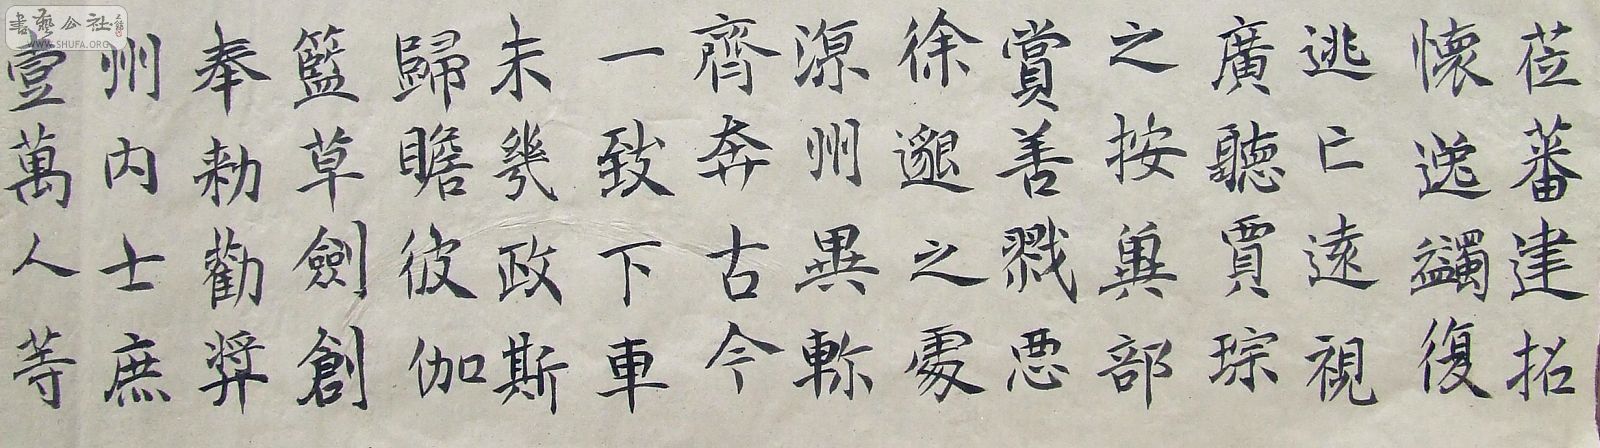 莅蕃建招
懷逸蠲復
逃亡遠視
廣聽賈琮
之按冀部
賞善戮惡
徐邈之處
源州異軫
齊奔古今
一致下車
未幾政斯
歸瞻彼伽
籃草劍創
奉勅勸奬
州内士庶
壹萬人等
書藝公社
WWW.SHUFA.ORG